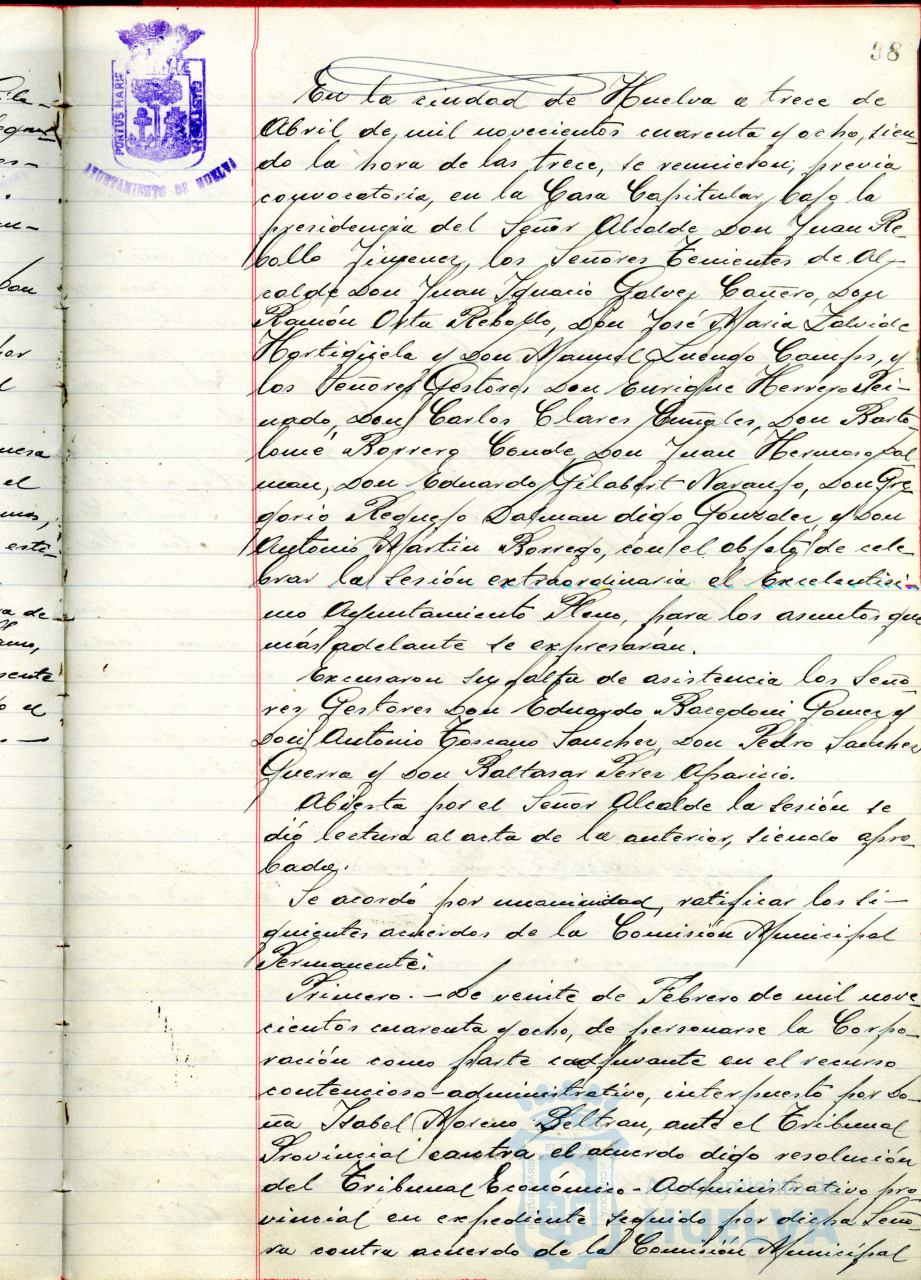 38
PORTUS MARIS
AYUNTAMIENTO DE HUELVA
En la ciudad de Huelva a trece de
Abril de mil novecientos cuarenta y ocho, sien-
do la hora de las trece, se reunieron, previa
convocatoria, en la Casa Capitular, bajo la
presidencia del Señor Alcalde Don Juan Re-
bollo Jimenez, los Señores Tenientes de Al-
calde Don Juan Ignacio Galvez Cañero, Don
Ramón Orta Rebollo, Don José Maria
Hortigüela y Don Manuel Luengo Camps, y
los Señores Gestores Don Enrique Herrero Pei-
nado, Don Carlos Clares Don Barto-
lomé Borrero Conde, Don Juan Hermoso Pal-
man, Don Eduardo Gilabert Naranjo, Don Gre-
gorio Requejo Dalman digo Gonzalez, y Don
Antonio Martin Borrego, con el objeto de cele-
brar la Sesión extraordinaria el Excelentísi-
mo Ayuntamiento Pleno, para los asuntos que
más adelante se expresarán.
Excusaron su falta de asistencia los Seño-
res Gestores Don Eduardo Gomez y
Don Antonio Toscano Sanchez, Don Pedro Sanchez
Guerra y Don Baltasar Perez Aparicio.
Abierta por el Señor Alcalde la Sesión se
dió lectura al acta de la anterior, siendo apro-
bada.
Se acordó por unanimidad, ratificar los si-
guientes acuerdos de la Comisión Municipal
Permanente:
Primero.- De veinte de Febrero de mil nove-
cientos cuarenta y ocho, de personarse la Corpo-
ración como parte coadyuvante en el recurso
contencioso-administrativo, interpuesto por Do-
ña Isabel Moreno Beltran, ante el Tribunal
Provincial contra el acuerdo digo resolución
del Tribunal Económico-Administrativo pro-
vincial en expediente seguido por dicha Seño-
ra contra acuerdo de la Comisión Municipal
Ayuntamiento de
HUELVA